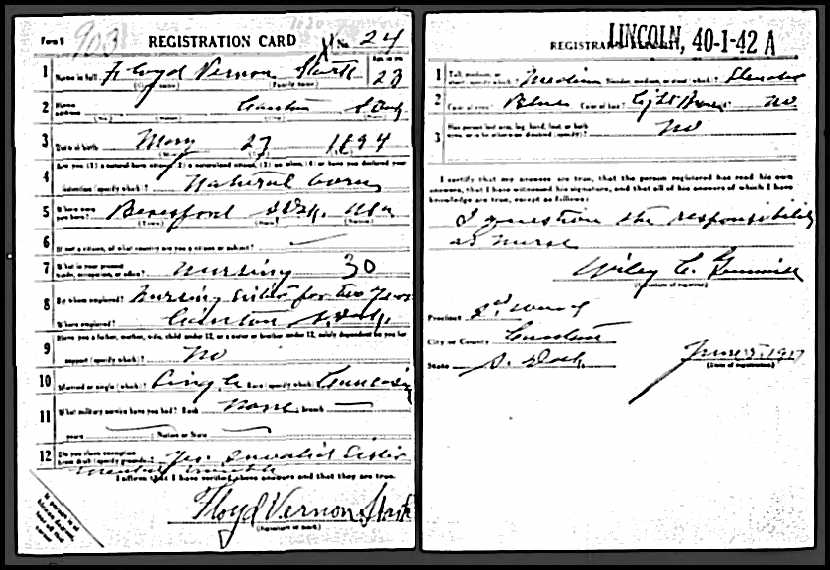 Form 1 903 REGISTRATION CARD No. 24
1 Name in full Floyd Vernon Age, in yrs. 23
(Given name) (Family name)
2 Home address Canton S Dak
3 Date of birth May 27 1894
4 Are you (1) a natural-born citizen, (2) a naturalized citizen, (3) an alien, (4) or have you declared your
intention (specify which)? Natural born
5 Where were you born? Beresford S Dak.
(Town) (State) (Nation)
6 If not a citizen, of what country are you a citizen or subject?
7 What is your present trade, occupation, or office? Nursing 30
8 By whom employed? Nursing sister for two years
Where employed? Canton S. Dak.
9 Have you a father, mother, wife, child under 12, or a sister or brother under 12, solely dependent on you for
support (specify which)? No
10 Married or single (which)? Single Race (specify which)? Caucasian
11 What military service have you had? Rank None ; branch
years ; Nation or State
12 Do you claim exemption from draft (specify grounds)? Yes. Invalid sister
I affirm that I have verified above answers and that they are true.
Floyd Vernon
(Signature or mark)
If person is of African descent, tear off this corner
LINCOLN, 40-1-42 A
REGISTRAR'S REPORT
1 Tall, medium, or short (specify which)? Medium Slender, medium, or stout (which)? Slender
2 Color of eyes? Blue Color of hair? Light Brown Bald? No
3 Has person lost arm, leg, hand, foot, or both eyes, or is he otherwise disabled (specify)? No
I certify that my answers are true, that the person registered has read his own
answers, that I have witnessed his signature, and that all of his answers of which I have
knowledge are true, except as follows:
I question the responsibility
as nurse
Wiley C.
(Signature of registrar)
Precinct 2d ward
City or County Canton
State S. Dak. June 5. 1917
(Date of registration)